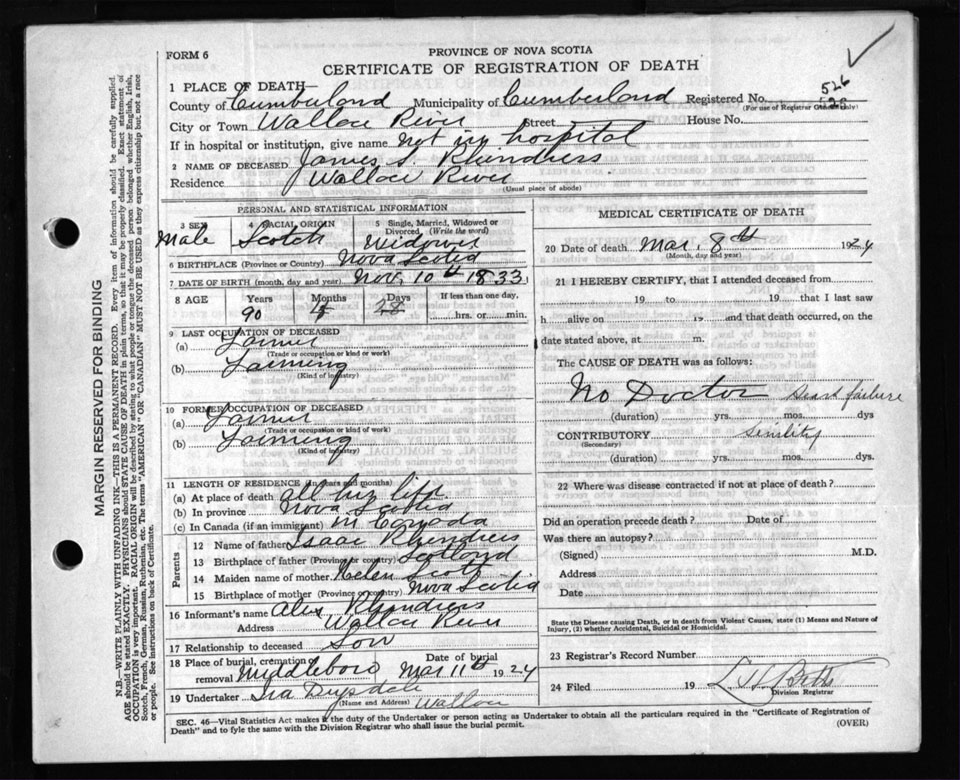 FORM 6
PROVINCE OF NOVA SCOTIA
CERTIFICATE OF REGISTRATION OF DEATH
1 PLACE OF DEATH—
County of Cumberland Municipality of Cumberland Registered No. 526
(For use of Registrar General only)
City or Town Wallace River Street House No.
If in hospital or institution, give name not in hospital
2 NAME OF DECEASED James S. Rhindress
Residence Wallace River
(Usual place of abode)
PERSONAL AND STATISTICAL INFORMATION
3 SEX Male
4 RACIAL ORIGIN Scotch
5 Single, Married, Widowed or Divorced, (Write the word) Widower
6 BIRTHPLACE (Province or Country) Nova Scotia
7 DATE OF BIRTH (month, day and year) Nov. 10th 1833
8 AGE Years Months Days If less than one day,
90 28 hrs. or min.
9 LAST OCCUPATION OF DECEASED
(a) Farmer
(Trade or occupation or kind or work)
(b) Farming
(Kind of industry)
10 FORMER OCCUPATION OF DECEASED
(a) Farmer
(Trade or occupation or kind of work)
(b) Farming
(Kind of industry)
11 LENGTH OF RESIDENCE (in years and months)
(a) At place of death all his life
(b) In province Nova Scotia
(c) In Canada (if an immigrant) in Canada
Parents
12 Name of father Isaac Rhindress
13 Birthplace of father (Province or country) Scotland
14 Maiden name of mother Helen Scott
15 Birthplace of mother (Province or country) Nova Scotia
16 Informant's name Alex Rhindress
Address Wallace River
17 Relationship to deceased Son
18 Place of burial, cremation or removal Middleboro Date of burial Mar 11th 1924
19 Undertaker Ira Drysdale Wallace
(Name and Address)
MEDICAL CERTIFICATE OF DEATH
20 Date of death Mar. 8th 1924
(Month, day and year)
21 I HEREBY CERTIFY, that I attended deceased from
19 to 19 that I last saw
h alive on 19 and that death occurred, on the
date stated above, at m.
The CAUSE OF DEATH was as follows:
No Doctor Heart failure
(duration) yrs. mos. dys
CONTRIBUTORY Senility
(Secondary)
(duration) yrs. mos. dys.
22 Where was disease contracted if not at place of death?
Did an operation precede death? Date of
Was there an autopsy?
(Signed) M.D.
Address
Date
State the Disease causing Death, or in death from Violent Causes, state (1) Means and Nature of
Injury, (2) whether Accidental, Suicidal or Homicidal.
23 Registrar's Record Number
24 Filed 19
Division Registrar
SEC. 46—Vital Statistics Act makes it the duty of the Undertaker or person acting as Undertaker to obtain all the particulars required in the "Certificate of Registration of
Death" and to fyle the same with the Division Registrar who shall issue the burial permit. (OVER)
MARGIN RESERVED FOR BINDING
N.B.—WRITE PLAINLY WITH UNFADING INK—THIS IS A PERMANENT RECORD. Every item of information should be carefully supplied.
AGE should be stated EXACTLY. PHYSICIANS should STATE CAUSE OF DEATH in plain terms, so that it may be properly classified. Exact statement of
OCCUPATION is very important. RACIAL ORIGIN will be described by stating to what people or tongue the deceased person belonged whether English, Irish,
Scotch, French, German, Russian, Ruthenian, etc. The terms "AMERICAN" OR "CANADIAN" MUST NOT BE USED as they express citizenship but not a race
or people. See instructions on back of Certificate.